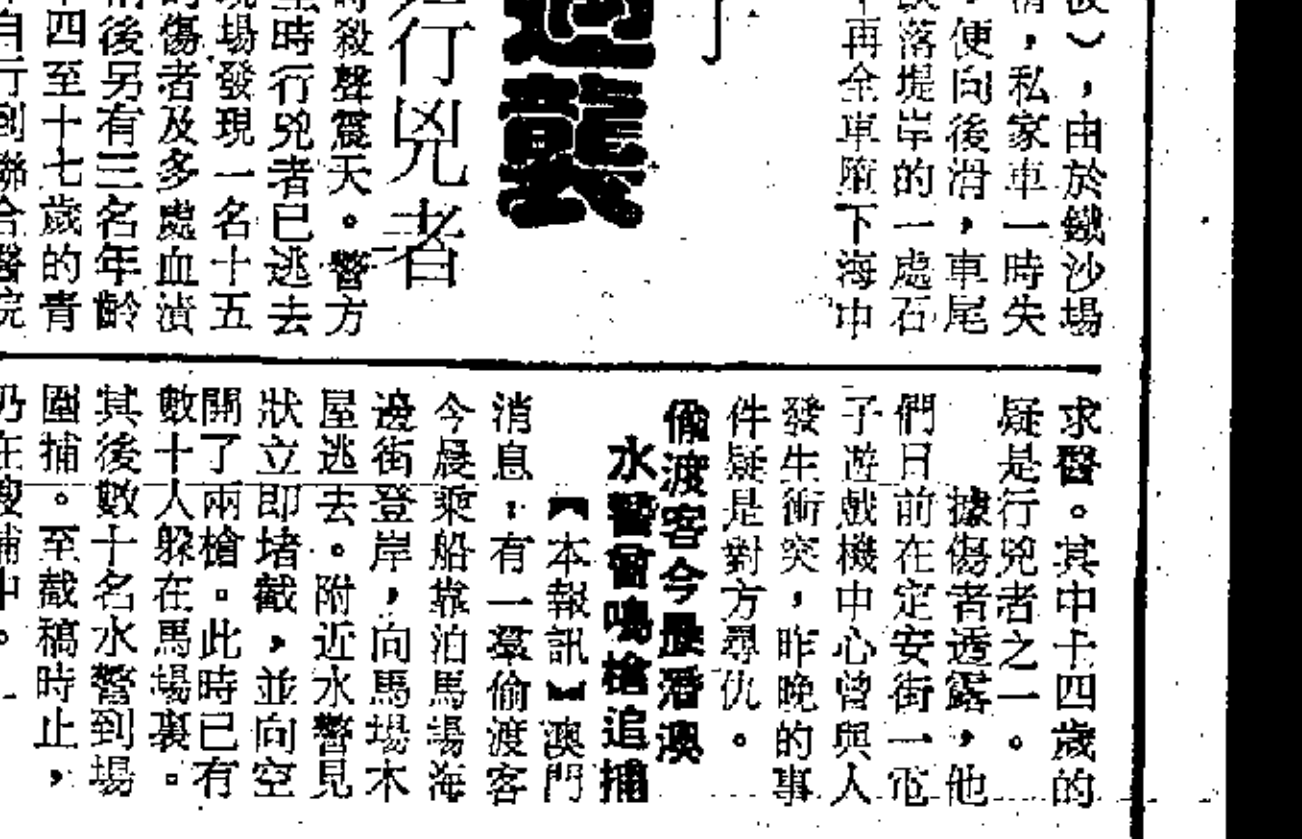 ，由於鐵沙場
，私家車一時失
便向後滑，車尾
落堤岸的一處石
再全車墮下海中
襲
行兇者
殺聲震天。警方
時行兇者已逃去
現場發現一名十五
傷者及多處血漬
後另有三名年齡
四至十七歲的青
自行到聯合醫院
求醫。其中十四歲的
疑是行兇者之一。
據傷者透露，他
們日前在定安街一電
子遊戲機中心曾與人
發生衝突，昨晚的事
件疑是對方尋仇。
偷渡客今晨潛澳
水警曾鳴槍追捕
【本報訊】澳門
消息：有一羣偷渡客
今晨乘船靠泊馬場海
邊街登岸，向馬場木
屋逃去。附近水警見
狀立即堵截，並向空
開了兩槍。此時已有
數十人躲在馬場裏。
其後數十名水警到場
圍捕。至截稿時止，
仍在搜捕中。